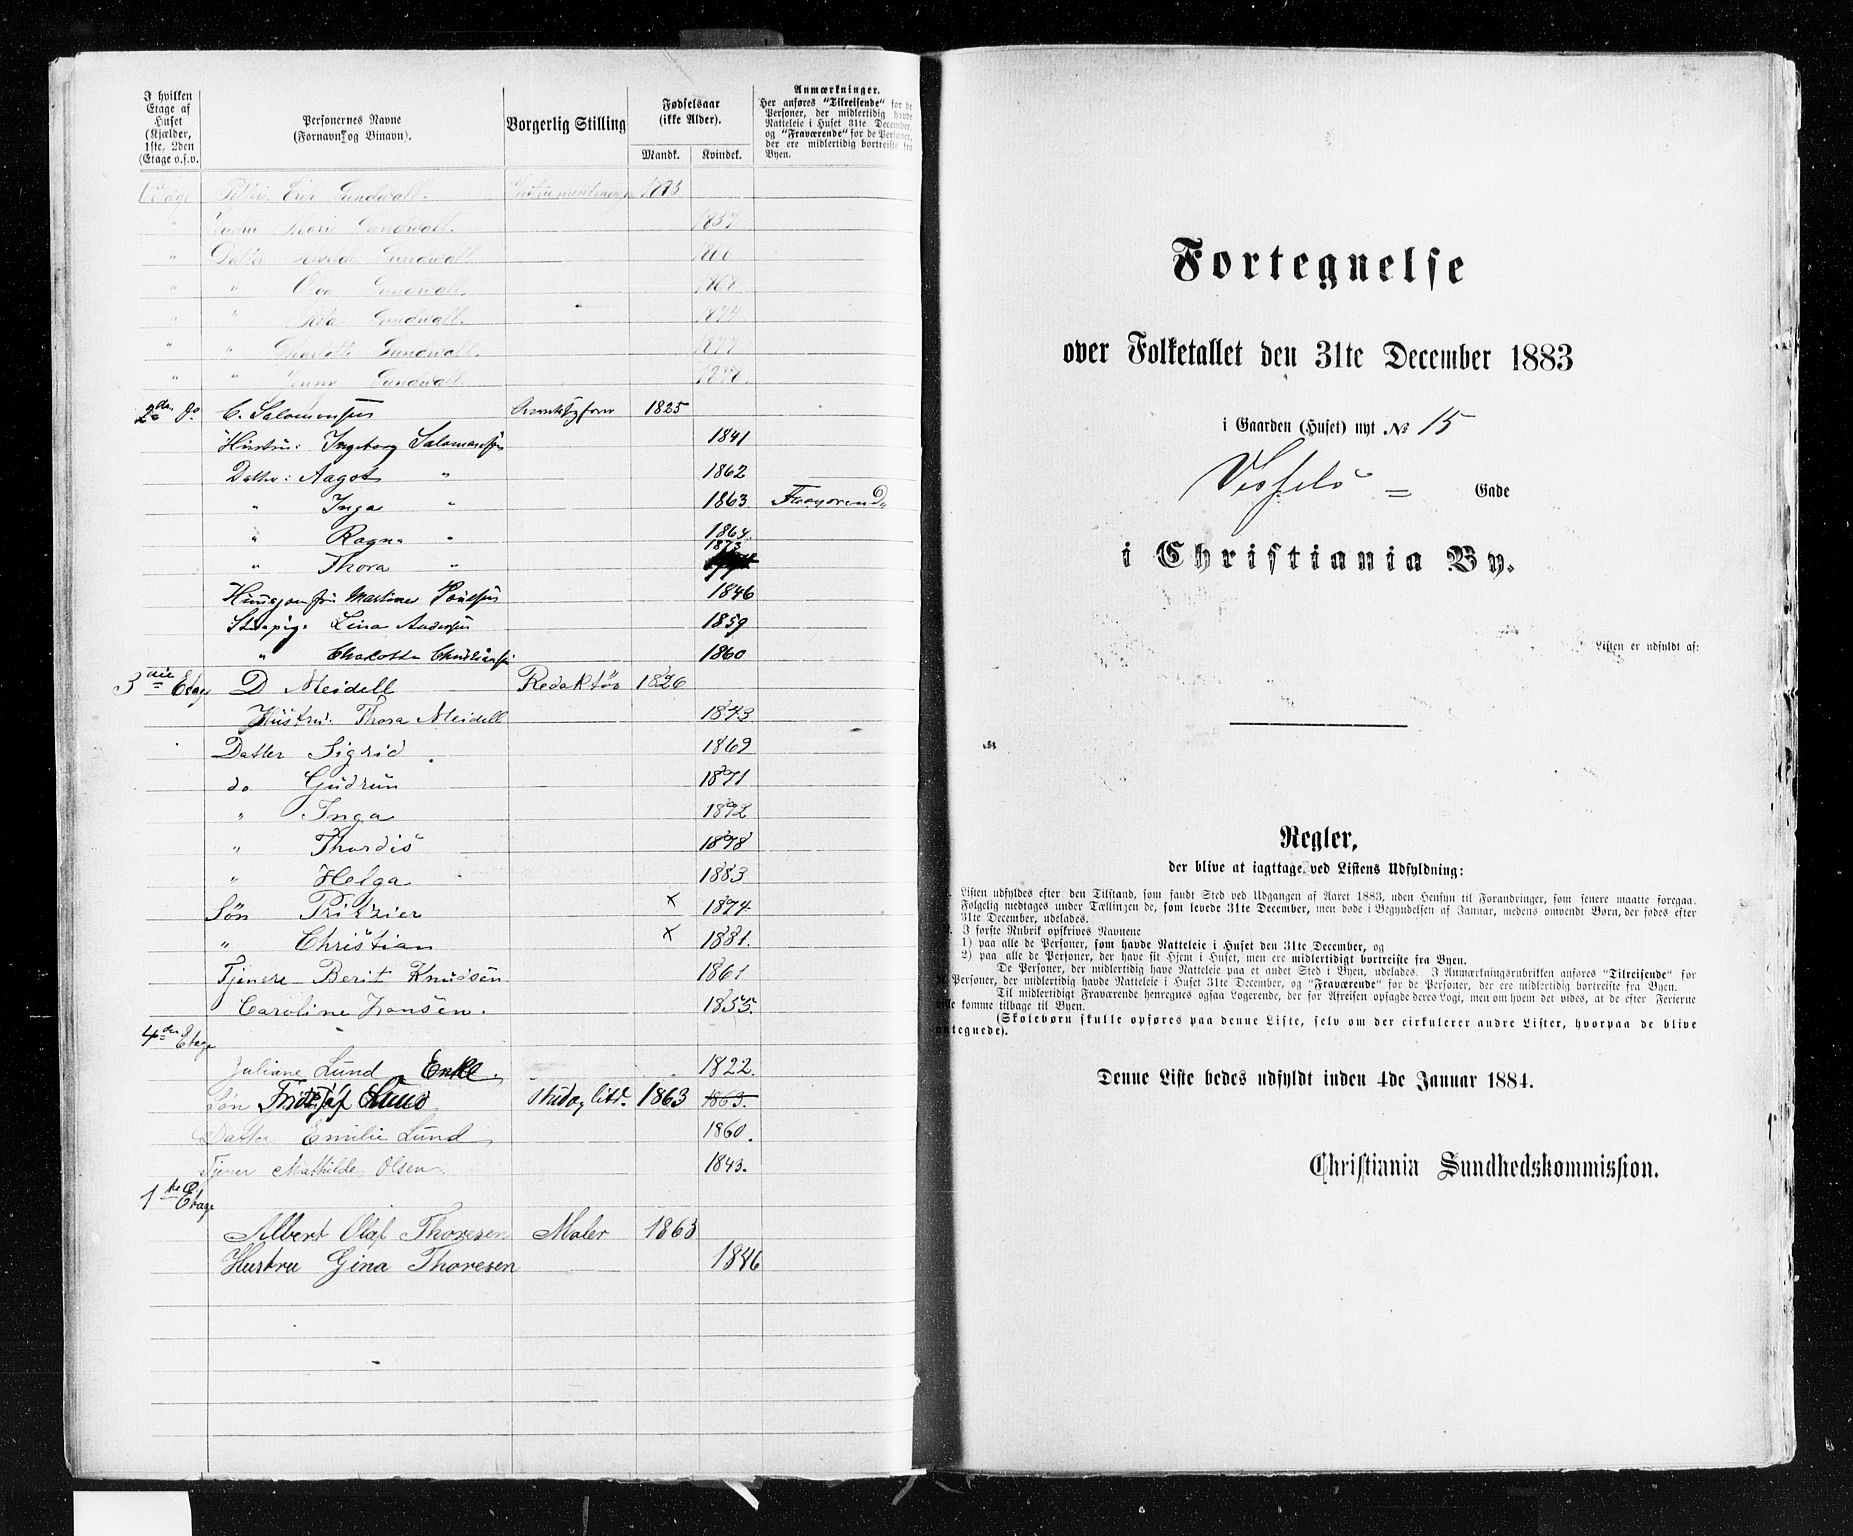 I hvilken
Etage af
Huset
(Kjælder,
1ste, 2den
Etage o.s.v.
Personernes Navne
(Fornavn og Binavn).
Borgerlig Stilling
Fødselsaar
(ikke Alder).
Mandk. Kvindek.
Anmærkninger.
Her anføres "Tilreisende" for de
Personer, der midlertidig havde
Natteleie i Huset 31te December,
og "Fraværende" for de Personer,
der ere midlertidig bortreiste fra
Byen.
Etage Eric Gundwall.
Marie Gundwall. 1857
" Datter Gundwall
" " Gundwall. 1868
" " Gundwall.
" " Charlotte Gundwall. 1877
" " Jenny Gundwall
2den do. C. Salomonsen 1825
Hustru: Ingeborg Salomonsen 1841
Datter: Aagot " 1862
" Inga " 1863 Fraværende
" Ragna " 1864
" Thora " 1873
Huusjomfru Martine Poulsen 1846
Stuepige Lina Andersen 1859
" Charlotte Christiansen 1860
3die Etage D Meidell Redaktør 1826
Hustru. Thora Meidell 1843
Datter Sigrid 1869
do Gudrun 1871
" Inga 1872
" Thordis 1878
" Helga 1883
Søn x 1874
" Christian x 1881.
Tjenere Berit Knudsen 1861
Caroline Hansen. 1855.
4de Etage
Juliane Lund, Enke. 1822.
Søn Fridtjof Lund stud. 1863 1863.
Datter Emilie Lund 1860.
Tjener Mathilde Olsen. 1843.
1ste Etage
Albert Olaf Thoresen Maler 1863
Hustru Gina Thoresen 1846
Fortegnelse
over Folketallet den 31te December 1883
i Gaarden (Huset) nyt No 15
Vessels = Gade
i Christiania By.
Listen er udfyldt af:
Regler,
der blive at iagttage ved Listens Udfyldning:
Listen udfyldes efter den Tilstand, som fandt Sted ved Udgangen af Aaret 1883, uden Hensyn til Forandringer, som senere maatte foregaa.
Følgelig medtages under Tællingen de, som levede 31te December, men døde i Begyndelsen af Januar, medens omvendt Børn, der fødes efter
31te December, udelades.
I første Rubrik opskrives Navnene
1) paa alle de Personer, som havde Natteleie i Huset den 31te December, og
2) paa alle de Personer, der have sit Hjem i Huset, men ere midlertidigt bortreiste fra Byen.
De Personer, der midlertidig have Natteleie paa et andet Sted i Byen, udelades. I Anmærkningsrubriken anføres "Tilreisende" for
Personer, der midlertidig havde Natteleie i Huset 31te December, og "Fraværende" for de Personer, der ere midlertidig bortreiste fra Byen.
Til midlertidigt Fraværende henregnes ogsaa Logerende, der før Afreisen opsagde deres Logi, men om hvem det vides, at de efter Ferierne
ville komme tilbage til Byen.
(Skolebørn skulle opføres paa denne Liste, selv om der cirkulerer andre Lister, hvorpaa de blive
antegnede).
Denne Liste bedes udfyldt inden 4de Januar 1884.
Christiania Sundhedskommission.